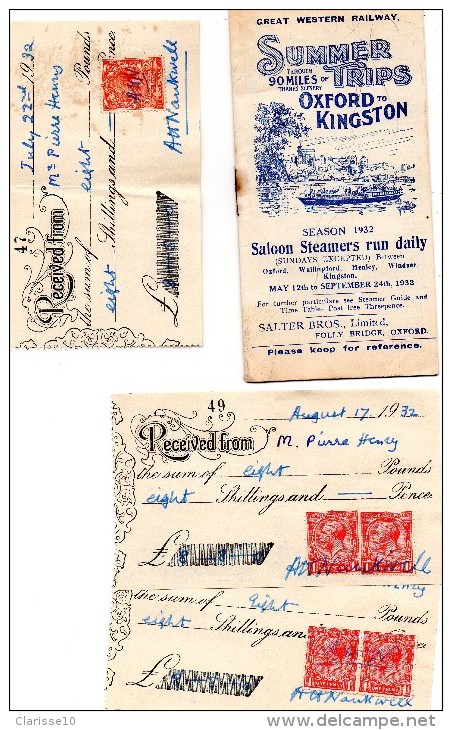 47
July 22nd 1932
Received from Mr Pierre Henry
the sum of eight Pounds
eight Shillings and — Pence
£8 8
GREAT WESTERN RAILWAY.
SUMMER TRIPS
THROUGH
90 MILES OF
THAMES SCENERY
OXFORD TO
KINGSTON
SEASON 1932
Saloon Steamers run daily
(SUNDAYS EXCEPTED) Between
Oxford, Wallingford, Henley, Windsor,
Kingston.
MAY 12th to SEPTEMBER 24th, 1932
For further particulars see Steamer Guide and
Time Table. Post free Threepence.
SALTER BROS., Limited,
FOLLY BRIDGE, OXFORD.
Please keep for reference.
49
August 17 1932
Received from M. Pierre Henry
the sum of eight Pounds
eight Shillings and — Pence
£8 8
Henry
the sum of Eight Pounds
eight Shillings an
£
ONE PENNY
Clarisse10
www.delcampe.net